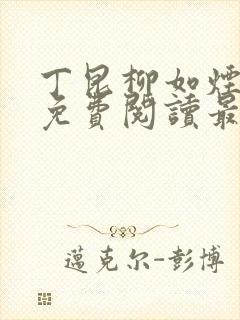 丁昆柳如煙
免費閱讀最
邁克尔-彭博